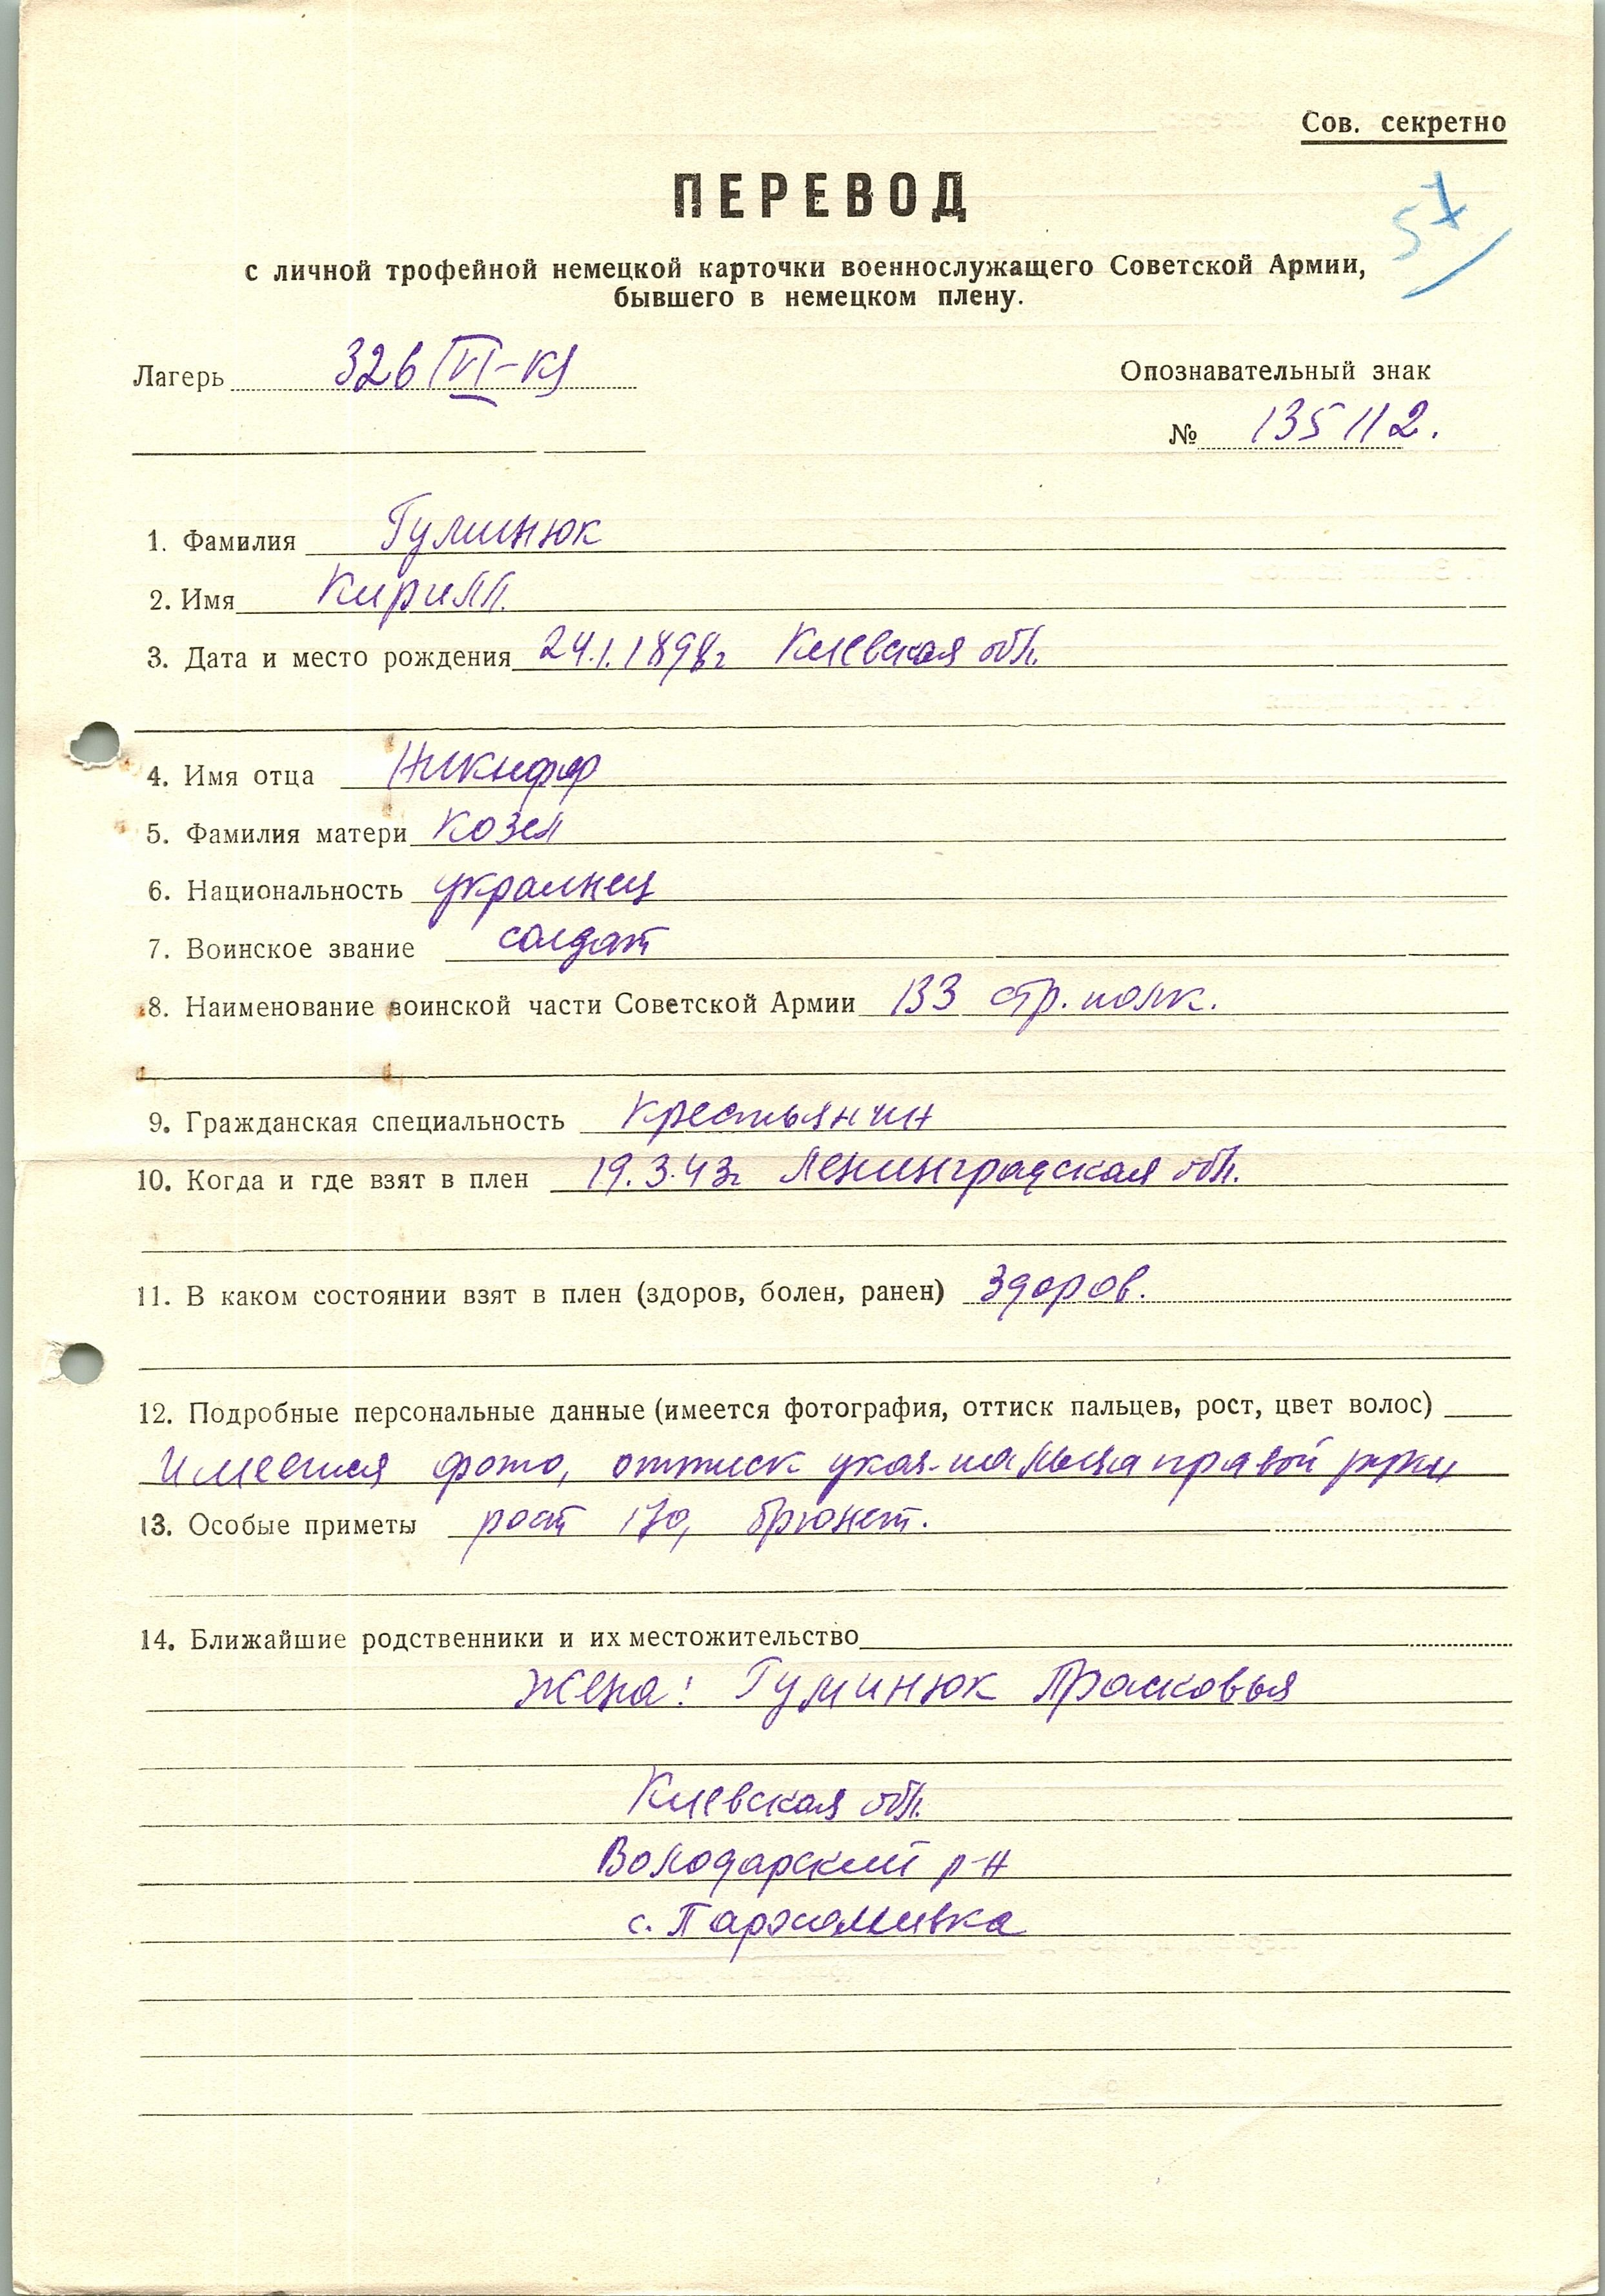 Сов. секретно
ПЕРЕВОД
57
с личной трофейной немецкой карточки военнослужащего Советской Армии,
бывшего в немецком плену.
Лагерь 326 (VI-К)
Опознавательный знак
№ 135112.
1. Фамилия Гуминюк
2. Имя Кирилл.
3. Дата и место рождения 24.1.1898г Киевская обл.
4. Имя отца Никифор
5. Фамилия матери Козел
6. Национальность украинец
7. Воинское звание солдат
8. Наименование воинской части Советской Армии 133 стр. полк.
9. Гражданская специальность Крестьянин
10. Когда и где взят в плен 19.3.43г Ленинградская обл.
11. В каком состоянии взят в плен (здоров, болен, ранен) Здоров.
12. Подробные персональные данные (имеется фотография, оттиск пальцев, рост, цвет волос)
Имеется фото, оттиск указ. пальца правой руки
13. Особые приметы рост 170, брюнет.
14. Ближайшие родственники и их местожительство
Жена: Гуминюк Прасковья
Киевская обл.
Володарский р-н
с. Пархомивка